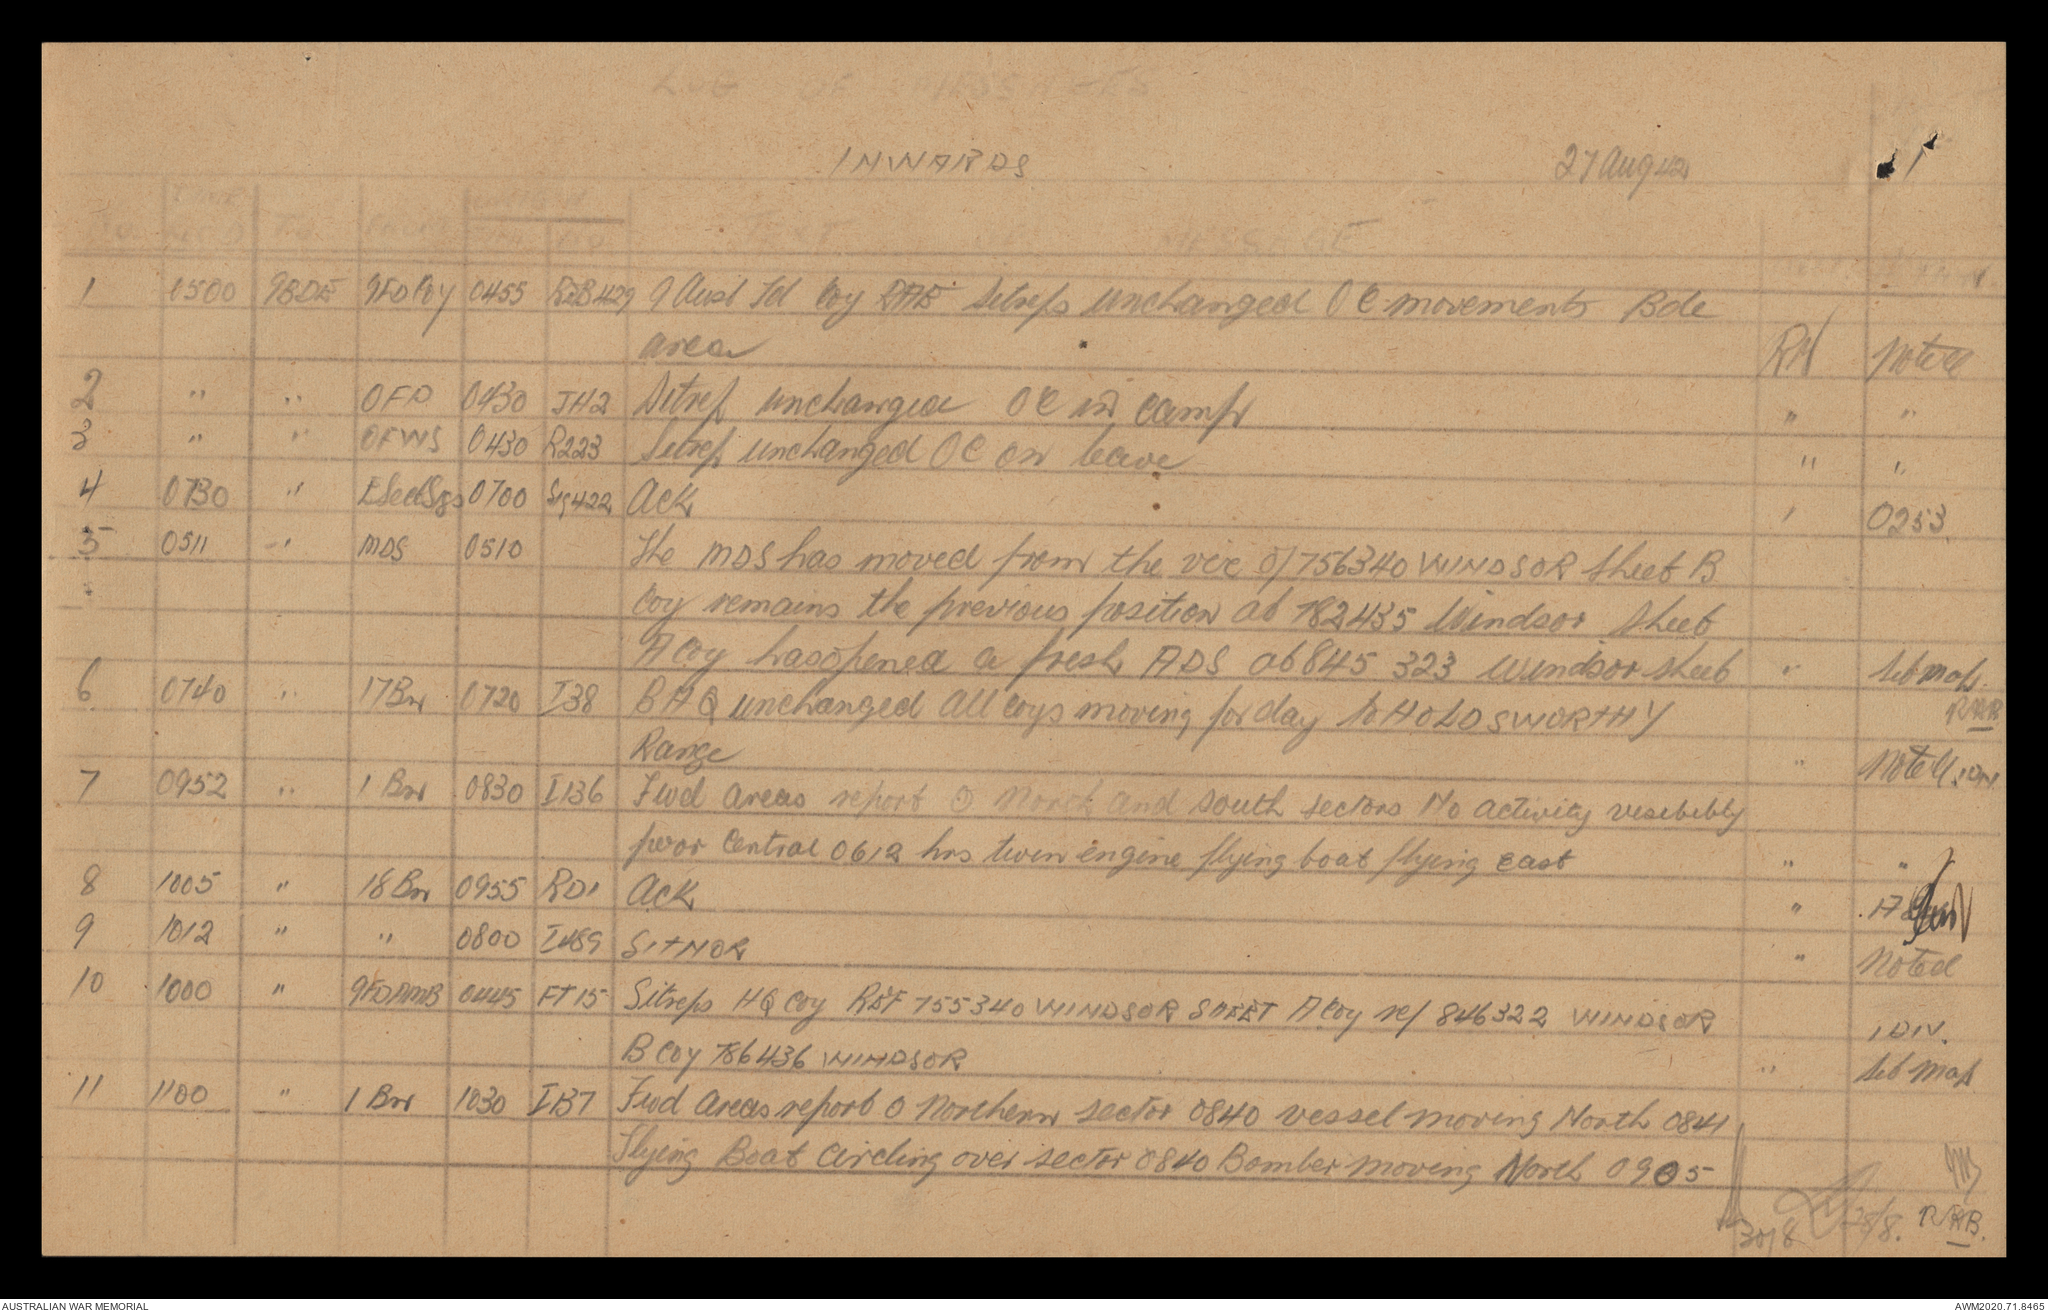 LOG OF MESSAGES
INWARDS 27 Aug 42 1
TEXT OF MESSAGE
1 0500 9BDE 9FD Coy 0455 RSB429 9 Aust Fd Coy RAE Sitreps unchanged OC movements Bde
area RH Noted
2 " " OFP 0430 JH2 Sitrep unchanged OC in camp " "
3 " " OFWS 0430 R223 Sitrep unchanged OC on leave " "
4 0730 " 0700 Sig422 Ack " 0253
5 0511 " MDS 0510 The MDS has moved from the vic of 756340 WINDSOR Sheet B
Coy remains the previous position at 782435 Windsor Sheet
A Coy has opened a fresh ADS at 845 323 Windsor sheet " Sit map.
RAB
6 0740 " 17Bn 0720 I38 BHQ unchanged All Coys moving for day to HOLDSWORTHY
Range " Noted
7 0952 " 1 Bn 0830 I136 Fwd areas report O North and South sectors No activity visebibly
poor Central 0612 hrs twin engine flying boat flying east " "
8 1005 " 18Bn 0955 RD1 Ack " 17
9 1012 " " 0800 I489 SITNOR " Noted
10 1000 " 9FDAMB 0445 FT15 Sitreps HQ Coy REF 755340 WINDSOR SHEET A Coy ref 846322 WINDSOR 1 DIV.
B Coy 786436 WINDSOR " Sit map
11 1100 " 1 Bn 1030 I137 Fwd Areas report O Northern sector 0840 vessel moving North 0841
Flying Boat circling over sector 0840 Bomber moving North 0905
30/8 28/8. RAB.
AUSTRALIAN WAR MEMORIAL AWM2020.71.8465